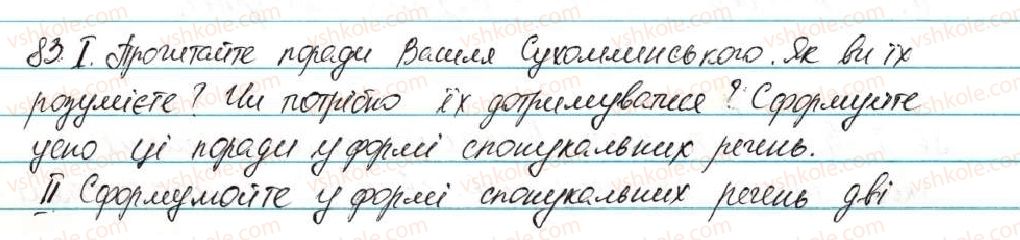 83. I. Прочитайте поради Василя Сухомлинського. Як ви їх
розумієте? Чи потрібно їх дотримуватися? Сформуйте
усно ці поради у формі спонукальних речень.
II Сформулюйте у формі спонукальних речень дві